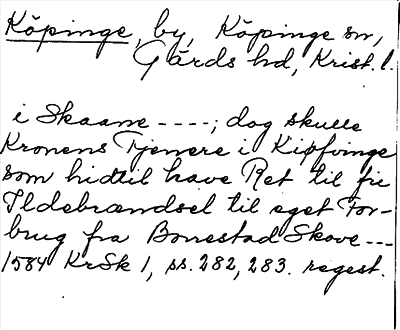 Köpinge, by, Köpinge sn,
Gärds hd, Krist. l.
i Skaane ----; dog skulle
Kronens Tjenere i Kiøfvinge
som hidtil have Ret til fri
Ildebrændsel til eget For-
brug fra Bonestad Skove ---
1584 KrSk 1, ss. 282, 283. regest.